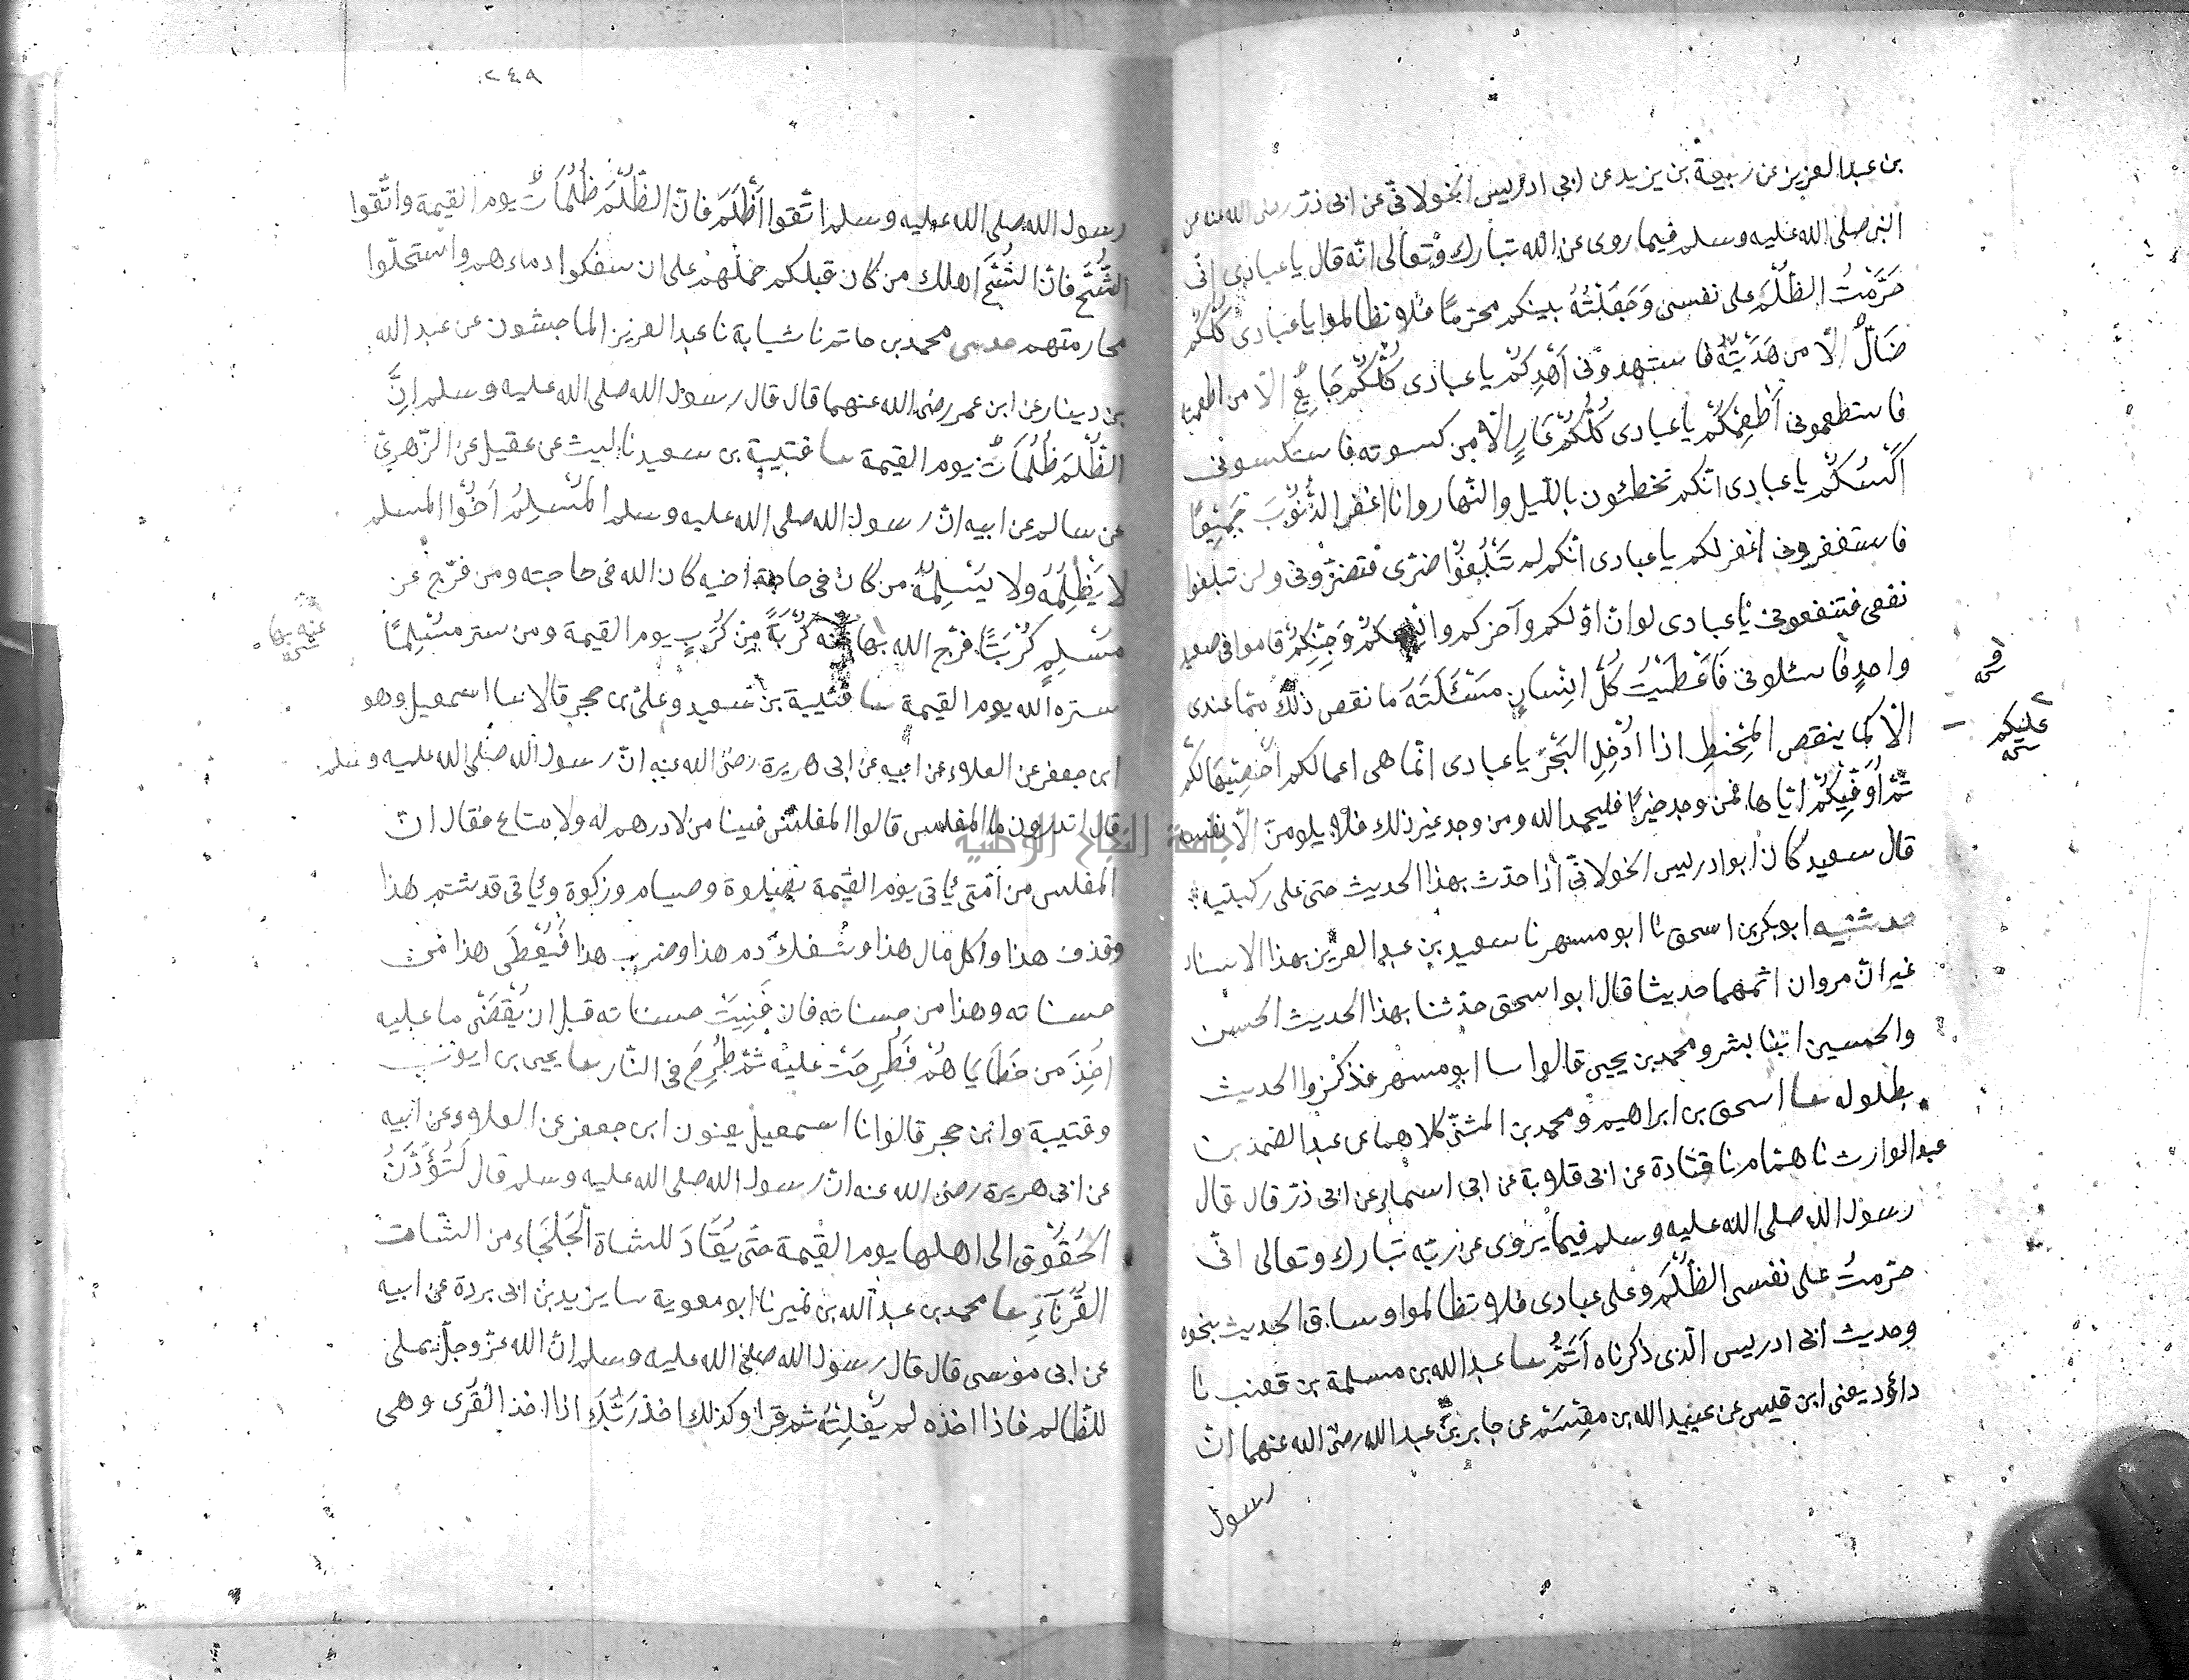 بن عبد العزيز عن ربيعة بن يزيد عن ابى ادريس الخولانىّ عن ابى ذرّ رضى الله عنه عن
النبى صلى الله عليه وسلم فيما روى عن الله تبارك وتعالى انّه قال يا عبادى انّى
حَرَّمْتُ الظُّلْمَ على نفسى وَجَعَلْتُهُ بينكم محرّمًا فلا تظالموا يا عبادى كُلُّكُمْ
ضَالٌّ الّا من هَدَيْتُهُ فاستهدونى اَهْدِكُمْ يا عبادى كُلُّكُمْ جَايِعٌ الّا من اطعمته
فاستطعمونى اُطْعِمْكُمْ يا عبادى كُلُّكُمْ عَارٍ الّا من كسوته فاستكسونى
اَكْسُكُمْ يا عبادى انّكم تخطئون بالّليل والنّهار وانا اغفر الذُّنُوْبَ جَمِيْعًا
فاستغفرونى اغفر لكم يا عبادى انّكم لم تَبْلُغُوْا ضرّى فتضرّونى ولن تبلغوا
نفعى فتنفعونى يا عبادى لو انّ اوّلكم وآخركم وانسكم وَجِنَّكُمْ قاموا فى صعيد
واحدٍ فاسئلونى فَاَعْطَيْتُ كُلَّ اِنْسانٍ مَسْئَلَتَهُ ما نقص ذلك ممّا عندى
الّا كما ينقص المِخْيَطِ اذا اُدْخِلِ البَحْرَ يا عبادى انّما هى اعمالكم احصيها لكم
ثُمَّ اُوَفِّيْكُمْ ايّاها فمن وجد خيرًا فليحمد الله ومن وجد غير ذلك فلا يلومنّ الّا نفسه
قال سعيد كان ابو ادريس الخولانىّ اذا حدّث بهذا الحديث حثى على ركبتيه
حدثنيه ابو بكر بن اسحق نا ابو مسهر نا سعيد بن عبد العزيز بهذا الاسناد
غير انّ مروان اتمّهما حديثا قال ابو اسحق حدّثنا بهذا الحديث الحسن
والحسين ابنا بشر ومحمد بن يحيى قالوا سا ابو مسهر فذكروا الحديث
بطوله سا اسحق بن ابراهيم ومحمد بن المثنّى كلاهما عن عبد الصّمد بن
عبد الوارث نا همّام نا قتادة عن ابى قلابة عن ابى اسماء عن ابى ذرّ قال قال
رسول الله صلى الله عليه وسلم فيما يَرْوِى عن ربّه تبارك وتعالى انّى
حرّمتُ على نفسى الظُّلْمَ وعلى عبادى فلا تظالموا وساق الحديث بنحوه
وحديث ابى ادريس الّذى ذكرناه اَتَمُّ سا عبد الله بن مسلمة بن قعنب نا
داؤد يعنى ابن قيس عن عبيد الله بن مِقْسَمْ عن جابر بن عبد الله رضى الله عنهما انّ
رسول
عليكم
٢٤٩
رسول الله صلى الله عليه وسلم اتّقوا الظُّلْمَ فانّ الظُّلْمَ ظُلُمَاتٌ يوم القيمة واتّقوا
الشُّحَّ فانّ الشُّحَّ اهلك من كان قبلكم حملهم على ان سفكوا دماءهم واستحلّوا
محارمهم حدثنى محمد بن حاتم نا شبابة نا عبد العزيز الماجشون عن عبد الله
بن دينار عن ابن عمر رضى الله عنهما قال قال رسول الله صلى الله عليه وسلم اِنَّ
الظُّلْمَ ظُلُمَاتٌ يوم القيمة سا قتيبة بن سعيد نا ليث عن عقيل عن الزّهرىّ
عن سالم عن ابيه انّ رسول الله صلى الله عليه وسلم المُسْلِمُ اَخُوْا المسلم
لا يَظْلِمُهُ ولا يُسْلِمُهُ من كان فى حاجة اخيه كان الله فى حاجته ومن فرّج عن
مُسْلِمٍ كُرْبَةً فرّج الله بها عنه كُرْبَةً مِنْ كُرَبِ يوم القيمة ومن ستر مُسْلِمًا
عنه بها
ستره الله يوم القيمة سا قتيبة بن سعيد وعلىّ بن حجر قالا سا اسمعيل وهو
ابن جعفر عن العلاء عن ابيه عن ابى هريرة رضى الله عنه انّ رسول الله صلى الله عليه وسلم
قال اتدرون ما المفلس قالوا المفلس فينا من لا درهم له ولا متاع فقال انّ
المفلس من امّتى يأتى يوم القيمة بصلوة وصيام وزكوة ويأتى قد شتم هذا
وقذف هذا واكل مال هذا وسفك دم هذا وضرب هذا فَيُعْطَى هذا من
حسناته وهذا من حسناته فان فَنِيَتْ حسناته قبل ان يُقْضَى ما عليه
اُخِذَ من خَطَايَاهُمْ فَطُرِحَتْ عليه ثُمَّ طُرِحَ فى النّار سا يحيى بن ايوب
وقتيبة وابن حجر قالوا نا اسمعيل يعنون ابن جعفر عن العلاء عن ابيه
عن ابى هريرة رضى الله عنه انّ رسول الله صلى الله عليه وسلم قال لَتُؤَدَّنَّ
الحُقُوْق الى اهلها يوم القيمة حتى يُقَادَ للشاة الجَلْحَاء من الشاة
القَرْنَآءِ سا محمد بن عبد الله بن نمير نا ابو معوية سا يزيد بن ابى بردة عن ابيه
عن ابى موسى قال قال رسول الله صلى الله عليه وسلم انّ الله عزّ وجلّ يملى
للظّالم فاذا اخذه لم يُفْلِتْهُ ثم قرا وكذلك اخذ رَبُّكَ اذا اخذ القُرى وهى
جامعة النجاح الوطنية